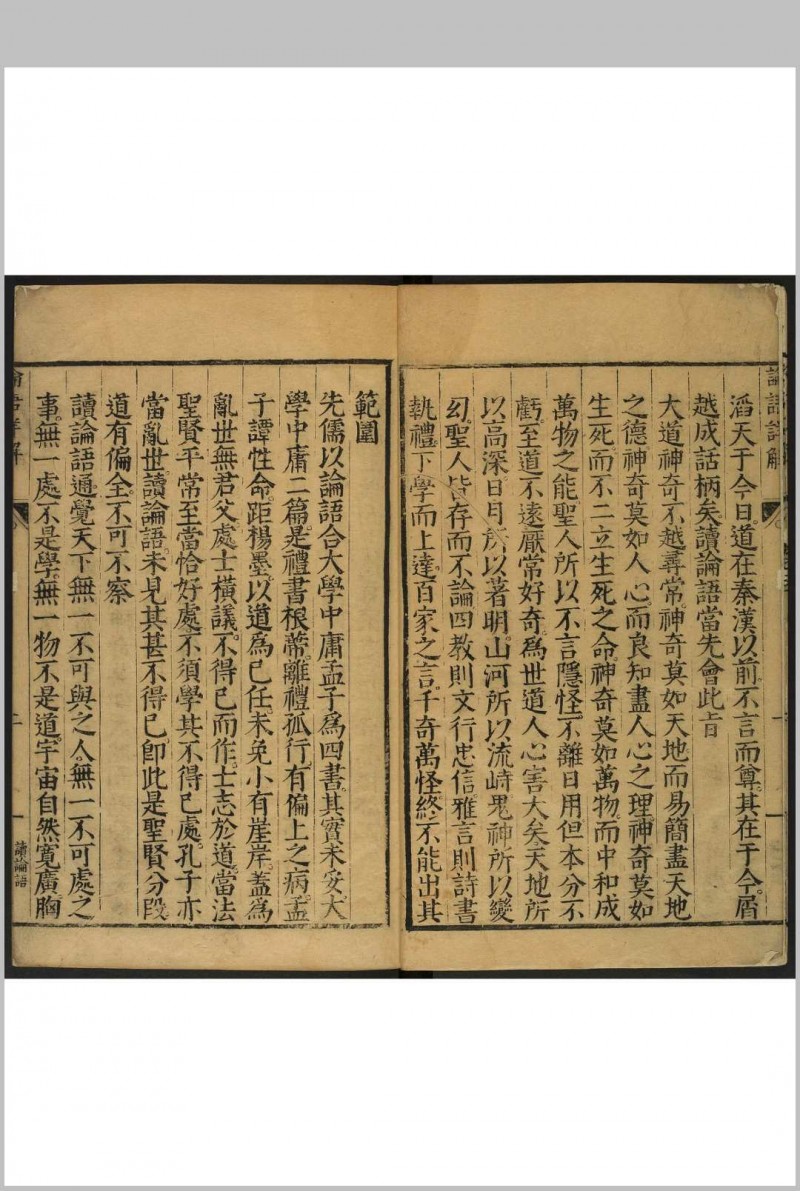 論語詳解
滔天于今日道在秦漢以前不言而尊其在于今屑
越成話柄矣讀論語當先會此旨
大道神奇不越尋常神奇莫如天地而易簡盡天地
之德神奇莫如人心而良知盡人心之理神奇莫如
生死而不二立生死之命神奇莫如萬物而中和成
萬物之能聖人所以不言隱怪不離日用但本分不
虧至道不遠厭常好奇爲世道人心害大矣天地所
以高深日月所以著明山河所以流峙鬼神所以變
幻聖人皆存而不論四教則文行忠信雅言則詩書
執禮下學而上達百家之言千奇萬怪終不能出其
範圍
先儒以論語合大學中庸孟子爲四書其實未安大
學中庸二篇是禮書根蒂離禮孤行有偏上之病孟
子譚性命距楊墨以道爲己任未免小有崖岸蓋爲
亂世無君父處士橫議不得已而作士志於道當法
聖賢平常至當恰好處不須學其不得已處孔子亦
當亂世讀論語未見其甚不得已卽此是聖賢分段
道有偏全不可不察
讀論語通覺天下無一不可與之人無一不可處之
事無一處不是學無一物不是道宇宙自然寬廣胸
讀論語